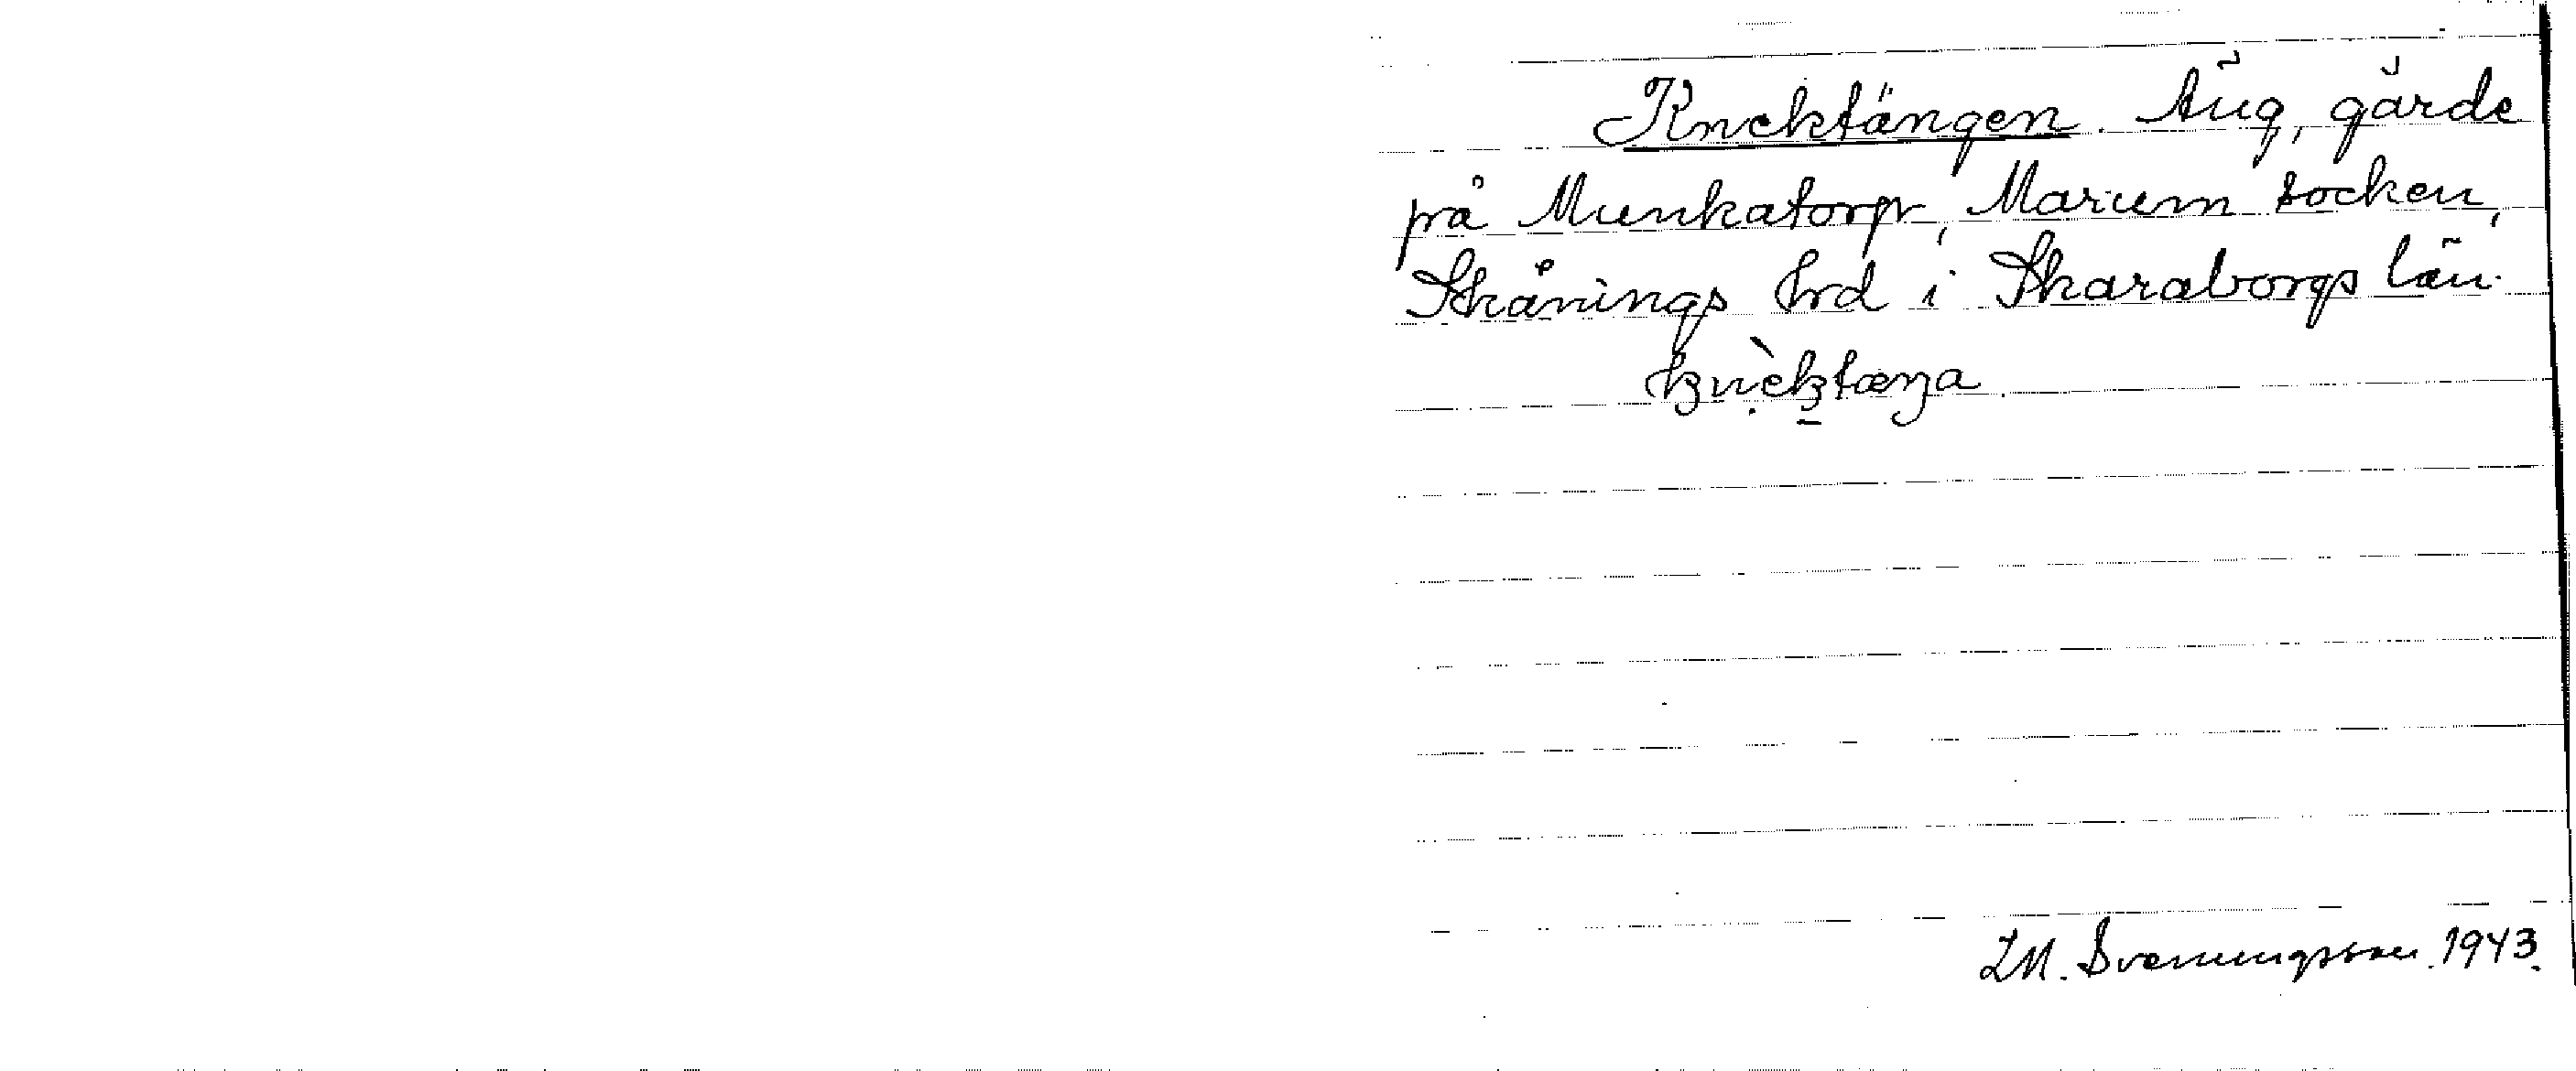 Knektängen. Äng, gärde
på Munkatorp, Marum socken,
Skånings hrd i Skaraborgs län.
knὲktæŋa.
I.M. Svenningsson. 1943.